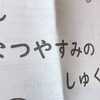 なつやすみの
しゅく